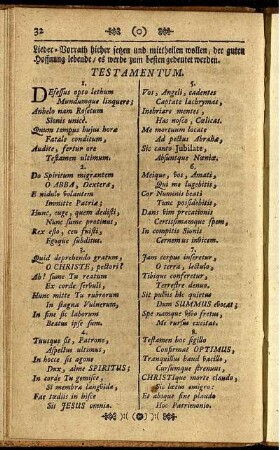 32
Lieder-Vorrath hieher setzen und mittheilen wollen, der guten
Hoffnung lebende, es werde zum besten gedeutet werden.
TESTAMENTUM.
1.
DEfessus opto lethum
Mundumque linquere;
Anhelo nam Rosetum
Sionis unicè.
Quem tempus hujus horæ
Fatalo conditum,
Audite, fertur ore
Testamen ultimum.
2.
Do Spiritum migrantem
O ABBA, Dextera,
E nidulo volantem
Immitte Patria;
Hunc, suge, quem dedisti,
Nunc sume protinus,
Rex esto, ceu fuisti,
Egoque subditus.
3.
Quid deprehendo gratum,
O CHRISTE, pectori?
Ah! sume Tu reatum
Ex corde serbuli,
Hunc mitte Tu rubrorum
In stagna Vulnerum,
In sine sic laborum
Beatus ipse sum.
4.
Tuusque sit, Patrone,
Aspectus ultimus;
In hocce sis agone
Dux, alme SPIRITUS;
In corde Tu gemisce,
Si membra langbida,
Fac tædiis in hisce
Sit JESUS omnia.
5.
Vos, Angeli, cadentes
Captate lachrymas,
Inebriare mentes,
Has nosco, Cœlicas.
Me mortuum locate
Ad pectus Abraha,
Sic canto Jubilate,
Absuntque Nœniæ.
6.
Meique, vos, Amati,
Qui me lugebitis,
Cor Numinis beati
Tunc possidebitis,
Dans bim precationis
Certissimamque spem,
In compitis Sionis
Cernemus invicem.
7.
Jam corpus inseretur,
O terra, lectulo,
Tibique conferetur,
Terrestre denuo.
Sit pulvis hic quietus
Dum SUMMUS avocat;
Spe namque vero fretus,
Me rursus excitat.
8.
Testamen hoc sigillo
Confirmat OPTIMUS,
Tranquillus haud bacillo,
Cursumque strenuus,
CHRISTIque morte claudo,
Sic lætus emigro:
Et absque fine plaudo
Hoc Patrimonio.